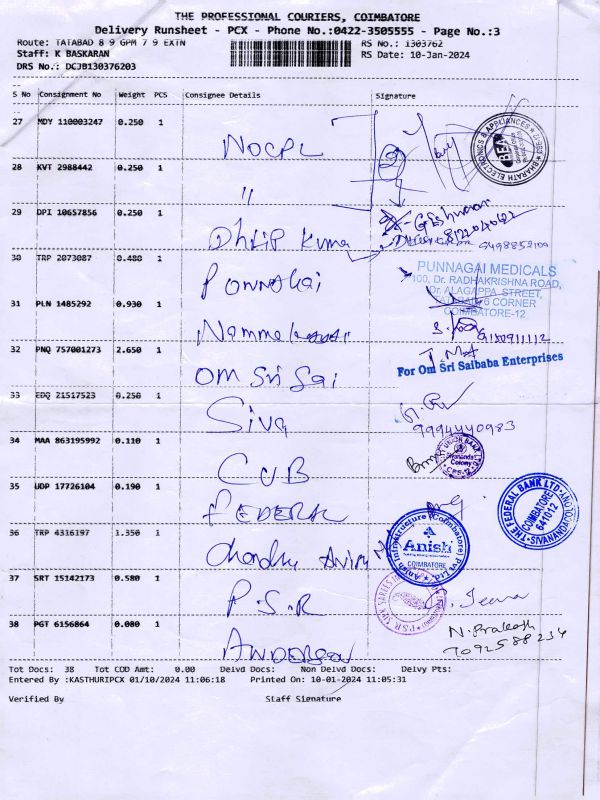 THE PROFESSIONAL COURIERS, COIMBATORE
Delivery Runsheet - PCX - Phone No.:0422-3505555 - Page No.:3
Route: TATABAD 8 9 GPM 7 9 EXTN RS No.: 1303762
Staff: K BASKARAN RS Date: 10-Jan-2024
DRS No.: DCJB130376203
S No Consignment No Weight PCS Consignee Details Signature
27 MDY 110003247 0.250 1
NOCPL
BHARATH ELECTRONICS & APPLIANCES
28 KVT 2988442 0.250 1
"
29 DPI 10657856 0.250 1
Dhilip Kuma
9498852109
30 TRP 2073087 0.480 1
Ponnakai
PUNNAGAI MEDICALS
100, Dr. RADHAKRISHNA ROAD,
Dr. ALAGAPPA STREET,
TATABAD 6 CORNER
COIMBATORE-12
31 PLN 1485292 0.930 1
9150911112
32 PNQ 757001273 2.650 1
Om Sri Sai
For Om Sri Saibaba Enterprises
33 EDQ 21517523 0.250 1
Siva
9994440983
34 MAA 863195992 0.110 1
CUB
35 UDP 17726104 0.190 1
FEDERAL
THE FEDERAL BANK LTD
COIMBATORE
641012
36 TRP 4316197 1.350 1
Anish Infrastructure (Coimbatore) Pvt Ltd
Anish
COIMBATORE
37 SRT 15142173 0.580 1
P.S.R
Jeeva
38 PGT 6156864 0.080 1
ANDERSON
N. Prakash
7092588234
Tot Docs: 38 Tot COD Amt: 0.00 Delvd Docs: Non Delvd Docs: Delvy Pts:
Entered By :KASTHURIPCX 01/10/2024 11:06:18 Printed On: 10-01-2024 11:05:31
Verified By Staff Signature